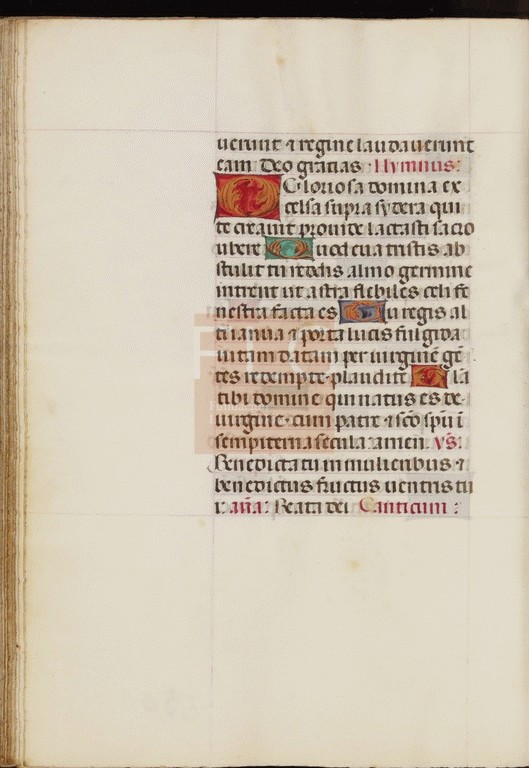 uerunt ⁊ regine laudauerunt
eam Deo gratias Hymnus:
O Gloriosa domina ex
celsa supra sydera qui
te creauit prouide lactasti sacro
ubere Quod eua tristis ab
stulit tu reddis almo germine
intrent ut astra flebiles celi fe
nestra facta es Tu regis al
ti ianua ⁊ porta lucis fulgida
uitam datam per uirginē gē
tes redempte plaudite Glā
tibi domine qui natus es de
uirgine cum patre ⁊ sc̄o sp̄u ī
sempiterna secula amen vs:
Benedicta tu in mulieribus ⁊
benedictus fructus uentris tu
i: an̄a: Beata dei Canticum:
FLG